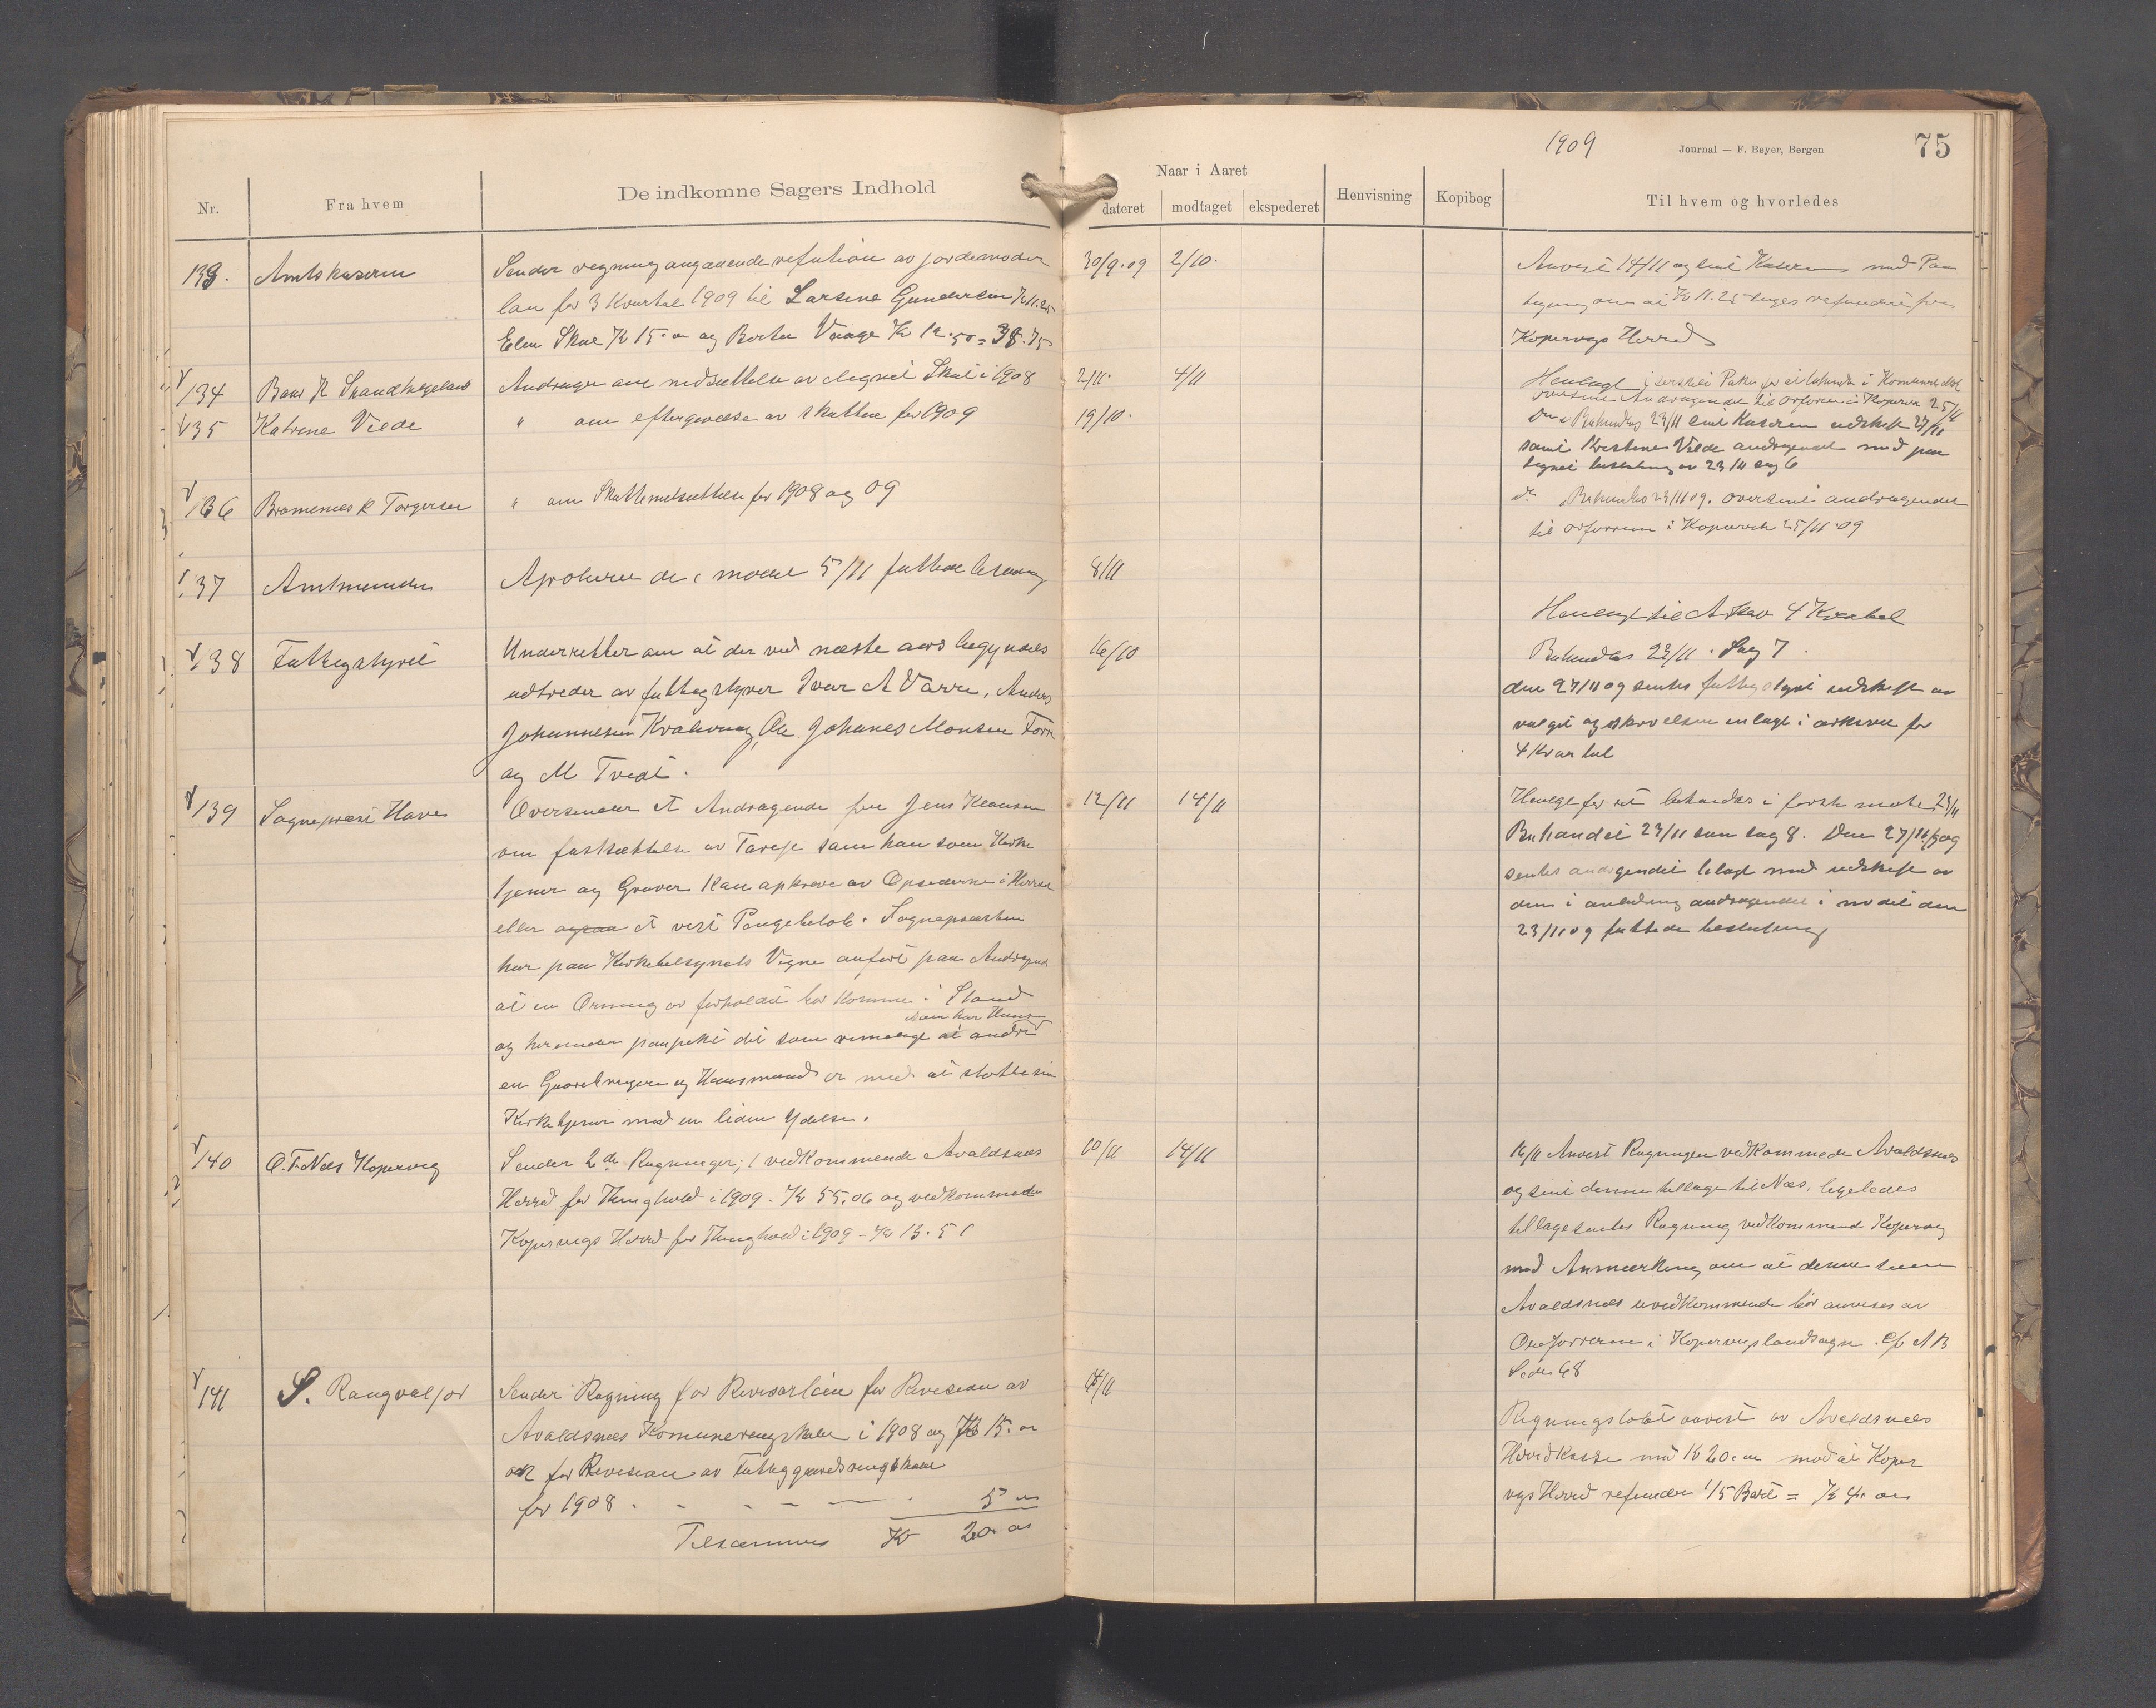 1909
Journal — F. Beyer, Bergen
75
Nr.
Fra hvem
De indkomne Sagers Indhold
Naar i Aaret
dateret
modtaget
ekspederet
Henvisning
Kopibog
Til hvem og hvorledes
133. Amtskaseren
Sender regning angaaende refution av jordemoder
løn for 3 Kvartal 1909 til Larsine Gundersen Kr 11.25
Elen Skae Kr 15.00 og Berta Vaage Kr 12.50 = 38.75
30/9.09 2/10.
Anvist 14/11 og sent Kaseren med Paa
tegning om at Kr 11.25 søges refunderet fra
Kopervigs Herred
134
Andrager om nedsættelse av elignet Skat i 1908
2/11. 4/11
Henlagt i særskilt Pakke for at behandles i
oversent Andragendet til orføren i Kopervik 25/11
135 Katrine Viede
" om eftergivelse av skatten for 1909
19/10.
Behandles 23/11 sent Kaseren udskrift 27/11
samt Kristine Viede andragende med paa
tegnet beslutning av 23/11 sag 6
136 Torgersen
" om Skattenedsættelse for 1908 og 09
Do Behandles 23/11 09. oversent andragendet
til orføreren i Kopervik 25/11 09
137 Amtmanden
Aproberer de i møde 5/11 fattede beslutning
8/11
Henlagt til Arkiv 4 Kvartal
138 Fattigstyret
Underretter om at der ved næste aars begyndelse
udtræder av fattigstyret Ivar A Vårre, Anders
Johannesen Kvalevaag, Ole Johanes Monsen
og M Tvedt.
16/10
Behandles 23/11. Sag 7.
den 27/11 09 sentes fattigstyret udskrift av
valget og skrivelsen enlagt i arkivet for
4 Kvartal
139 Sogneprest Have
Oversender et Andragende fra Jens Klausen
om fastsættelse av Taxse som han som Kirke
tjener og Graver kan opkræve av Opsiderne i Herred
eller et vist Pengebeløb. Sognepræsten
har paa Kirketilsynets Vegne anført paa Andragende
at en Ordning av forholdet bør komme i Stand
som har
og herunder paapekt det som rimelig at andre
en Gaardbrugere og Husmænd er med at støtte sin
Kirketjener med en liden Ydelse.
12/11 14/11
Henlagt for at behandles i første møte 23/11
Behandlet 23/11 som sag 8. Den 27/11/09
sentes andragendet tilbage med udskrift av
den i anledning andragendet i mødet den
23/11 09 fattede beslutning
140 O. T. Næs Kopervig
Sender 2de Regninger; 1 vedkommende Avaldsnæs
Herred for Thinghold i 1909 - Kr 55.06 og vedkommende
Kopervigs Herred for Thinghold i 1909 - Kr 13.51
10/11 14/11
16/11 Anvist Regningen vedkommede Avaldsnæs
og sent denne tilbage til Næs, ligeledes
tilbagesentes Regning vedkommend Kopervig
med Anmærkning om at denne som
Avaldsnæs uvedkommende bør anvises av
Oraføreren i Kopervigs landsogn.
Side 68
141 S. Rangvaljor
Sender Regning for Revisorløn for Revision av
Avaldsnæs Komuneregnskaber i 1908 og Kr 15.00
ok for Revision av Fattiggaardsregnskaber
for 1908 5 00
Tilsammen Kr 20.00
14/11
Regningsbløbet anvist av Avaldsnæs
Herredkasse med Kr 20.00 mod at Koper
vigs Herred refunder 1/5 Part = Kr 4.00